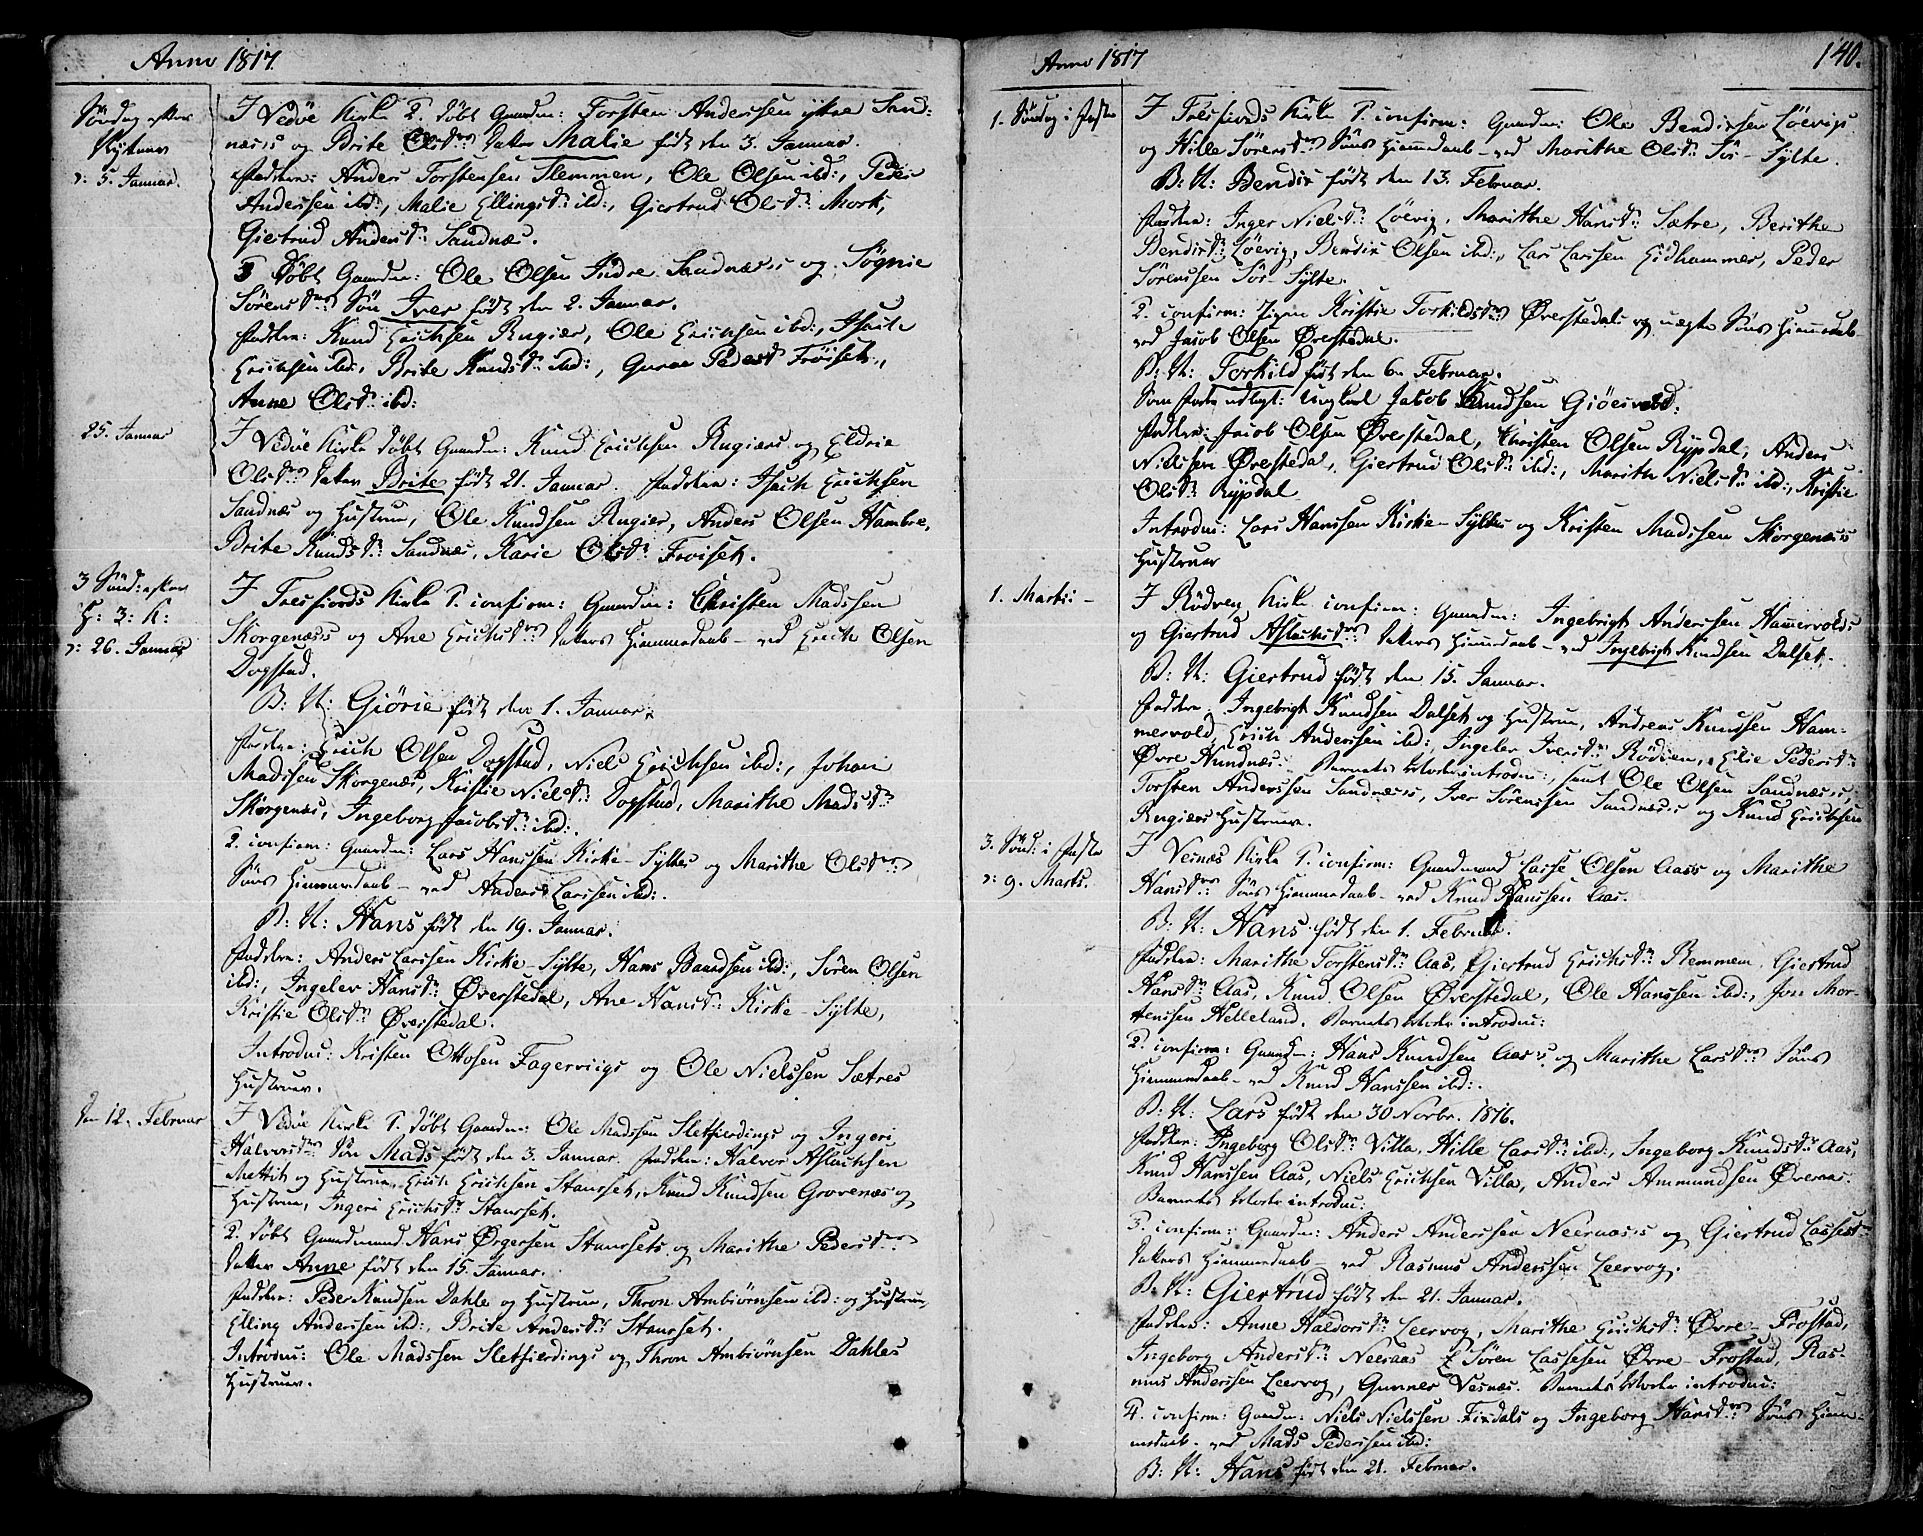 Anno 1817.
Søndag efter
Nytaar
ɔ: 5. Januar.
I Vedøe Kirke 2. døbt Gaardm: Torsten Anderssen ytre Sand-
næss og Brite Olsdrs Datter Malie født den 3. Januar.
Faddere: Anders Torstensen Flemmen, Ole Olsen ibd:, Peder
Anderssen ibd:, Malie Ellingsdr: ibd:, Giertrud Olsdr: Mork,
Giertrud Andersdr: Sandnæs.
Døbt Gaardm: Ole Olsen Indre Sandnæss og Søgnie
Sørensdrs Søn Iver født den 2. Januar.
Faddere: Knud Erichsen Rugiær, Ole Erichsen ibd:, Isach
Erichsen ibd:, Brite Knudsdr: ibd:, Guroe Pedersdr Frøiset,
Anne Olsdr: ibd:
25. Januar
I Vedøe Kirke døbt Gaardm: Knud Erichsen Rugiærs og Eldrie
Olsdrs Datter Brite født 21. Januar. Faddere: Isach Erichsen
Sandnæs og Hustrue, Ole Knudsen Rugiær, Anders Olsen Hambre,
Brite Knudsdr: Sandnæs, Karie Olsdr: Froiset.
3 Sønd: efter
H: 3: K:
ɔ: 26. Januar
I Tresfiords Kirke 1. confirm: Gaardm: Christen Madssen
Skorgenæss og Ane Erichsdrs Datters Hiemmedaab – ved Erich Olsen
Dogstad.
B: N: Giørie født den 1. Januar.
Faddere: Erich Olsen Dogstad, Niels Erichsen ibd:, Johan
Madssen Skorgenæs, Kristie Nielsdr: Dogstad, Marithe Madsdr:
Skorgenæs, Ingeborg Jacobsdr: ibd:.
2. confirm: Gaardm: Lars Hanssen Kirke-Syltes og Marithe Olsdrs
Søns Hiemmedaab – ved Anders Larssen ibd:.
B: N: Hans født den 19. Januar.
Faddere: Anders Larssen Kirke-Sylte, Hans Baardsen ibd:, Søren Olsen
ibd:, Ingeler Hansdr: Øverstedal, Ane Hansdr: Kirke-Sylte,
Kristie Olsdr: Øverstedal.
Introdu: Kristen Ottosen Fagerviigs og Ole Nielssen Sætres
Hustruer.
Den 12. Februar
I Vedøe Kirke 1. døbt Gaardm: Ole Madssen Sletfierdings og Ingeri
Halvorsdrs Søn Mads født den 3. Januar. Faddere: Halvor Aslachsen
Mettit og Hustrue, Erich Erichsen Staurset, Knud Knudsen Grovenæs og
Hustrue, Ingeri Erichsdr: Staurset.
2. døbt Gaardmand Hans Ørgersen Staursets og Marithe Pedersdrs
Datter Anne født den 15. Januar.
Faddere: Peder Knudsen Dahle og Hustrue, Thron Ambiørnsen ibd: og Hustrue,
Elling Anderssen ibd:, Brite Andersdr: Staurset.
Introdu: Ole Madssen Sletfierdings og Thron Ambiørnsen Dahles
Hustruer.
Anno 1817
140.
1. Søndag i Faste
I Tresfiords Kirke 1. confirm: Gaardm: Ole Bendixsen Løevigs
og Hille Sørensdrs Søns Hiemmedaab – ved Marithe Olsdr: Sør-Sylte.
B: N: Bendix født den 13. Februar.
Faddere: Inger Nielsdr: Løevig, Marithe Hansdr: Sætre, Berithe
Bendixdr: Løevig, Bendix Olsen ibd:, Lars Larssen Eidhammer, Peder
Sørenssen Sør-Sylte.
2. confirm: Pigen Kristie Torkildsdrs Øverstedals og uægte Søns Hiemmedaab
ved Jacob Olsen Øverstedal.
B: N: Torkild født den 6. Februar.
Som Fader udlagt: Ungkarl Jacob Knudsen Giøesvold.
Faddere: Jacob Olsen Øverstedal, Christen Olsen Rypdal, Anders
Nielssen Øverstedal, Giertrud Olsdr: ibd:, Marith Nielsdr: ibd:, Kristie
Olsdr: Rypdal
Introdu: Lars Hanssen Kirke-Syltes og Kristen Madssen Skorgenæss
Hustruer
1. Marti: –
I Rødven Kirke confirm: Gaardm: Ingebrigt Anderssen Hamervolds
og Giertrud Aslachsdrs Datters Hiemmedaab – ved Ingebrigt Knudsen Dalset.
B: N: Giertrud født den 15. Januar.
Faddere: Ingebrigt Knudsen Dalset og Hustrue, Andreas Knudsen Ham-
mervold, Erich Anderssen ibd:, Ingeler Iversdr: Rødven, Elie Pedersdr:
Øvre Hundnæs. Barnets Moder introdu:, samt Ole Olsen Sandnæss,
Torsten Anderssen Sandnæss, Iver Sørenssen Sandnæss og Knud Erichsen
Rugiærs Hustruer.
3. Sønd: i Faste
ɔ: 9. Marts.
I Vesnæs Kirke 1. confirm: Gaardmand Lasse Olsen Aass og Marithe
Hansdrs Søns Hiemmedaab – ved Knud Hanssen Aas.
B: N: Hans født den 1. Februar.
Faddere: Marithe Torstensdr: Aas, Giertrud Erichsdr: Remmem, Giertrud
Hansdr: Aas, Knud Olsen Øverstedal, Ole Hanssen ibd:, Jon Mor-
tenssen Helleland. Barnets Moder introdu:
2. confirm: Gaardm: Hans Knudsen Aass og Marithe Larsdrs Søns
Hiemmedaab – ved Knud Hanssen ibd:.
B: N: Lars født den 30 Novbr. 1816.
Faddere: Ingeborg Olsdr: Villa, Hille Larsdr: ibd:, Ingeborg Knudsdr: Aas,
Knud Hanssen Aas, Niels Erichsen Villa, Anders Ammundsen Øveraas.
Barnets Moder introdu:
3. confirm: Gaardm: Anders Anderssen Neeraass og Giertrud Lassesdrs
Datters Hiemmedaab – ved Rasmus Anderssen Leervog.
B: N: Giertrud født den 21. Januar.
Faddere: Anne Haldorsdr: Leervog, Marithe Erichsdr: Øvre-Frostad,
Ingeborg Andersdr: Neeraas, Søren Lassesen Øvre-Frostad, Ras-
mus Anderssen Leervog, Gunner Vesnæs. Barnets Moder introdu:
4. confirm: Gaardm: Niels Nielssen Fixdals og Ingeborg Hansdrs Søns Hiem-
medaab – ved Mads Pederssen ibd:
B: N: Hans født den 21. Februar.